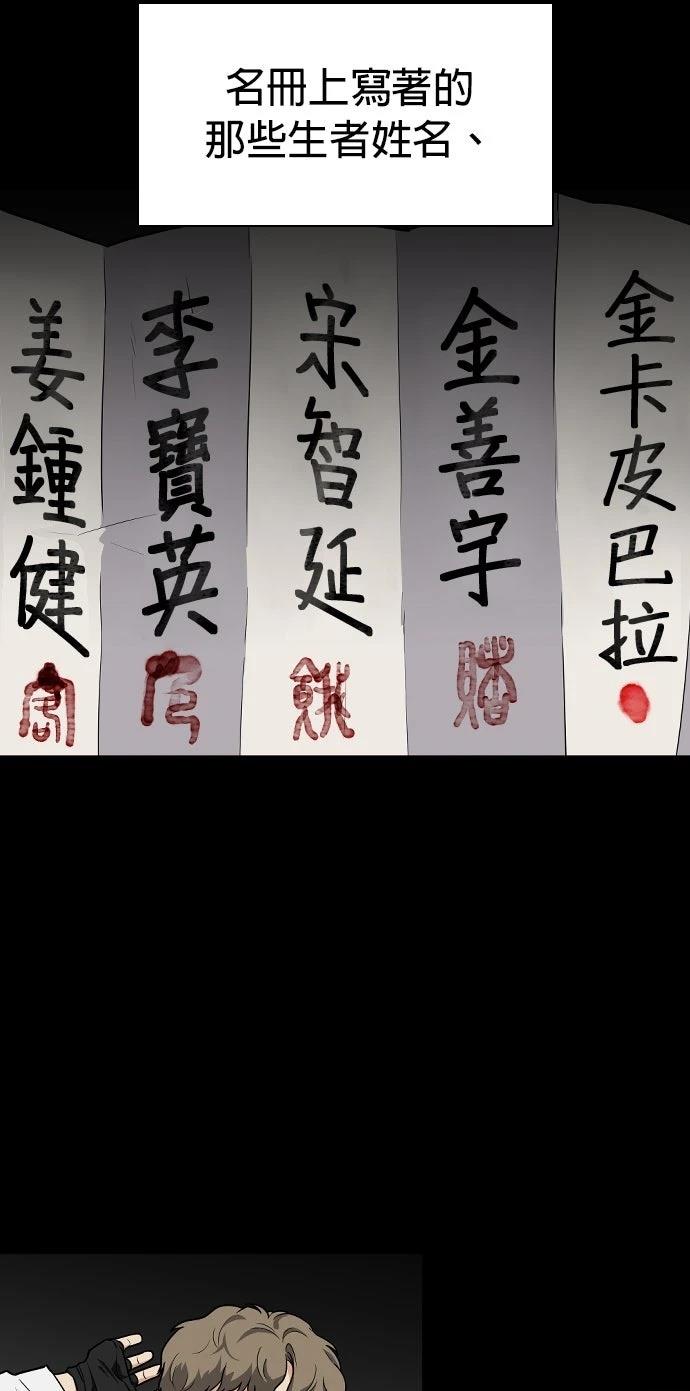 名冊上寫著的
那些生者姓名、
金卡皮巴拉
金善宇
宋智延
李寶英
姜鍾健